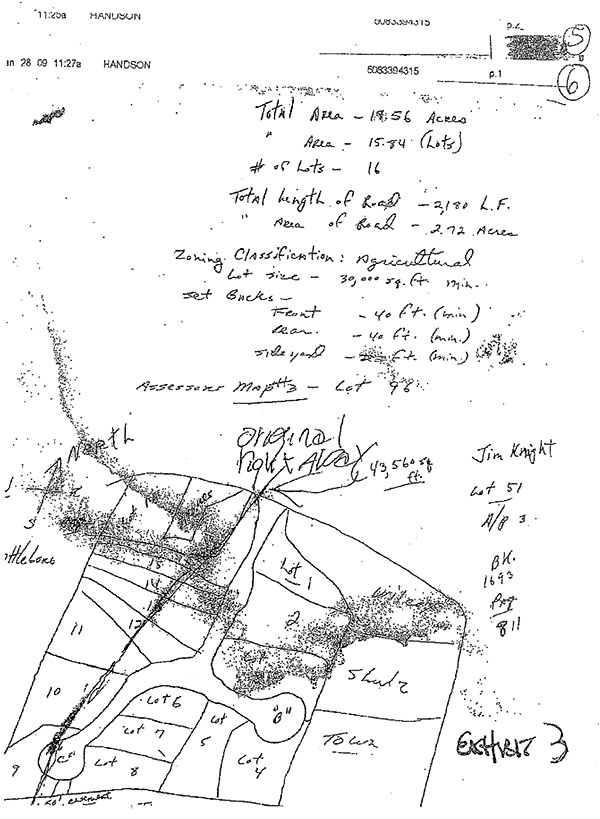 11:25a HANDSON 5083394315 p.2 5
an 28 09 11:27a HANDSON 5083394315 p.1 6
Total Area - 18.56 Acres
" Area - 15.84 (Lots)
# of Lots - 16
Total Length of Road - 2,180 L.F.
" Area of Road - 2.72 Acres
Zoning Classification: Agricultural
Lot size - 30,000 sq. ft. min.
Set Backs -
Front - 40 ft. (min)
Rear - 40 ft. (min.)
Sideyard - ft. (min)
Assessors Map #3 - Lot 96
Original
right Away
43,560 sq
ft.
Jim Knight
Lot 51
A/P 3
BK.
1693
Pag
811
North
S
ttleboro
Lot 1
2
15
14
13
12
11
10
9
Lot 6
Lot 7
Lot 8
Lot 5
Lot 4
"B"
"C"
Town
Exhibit 3